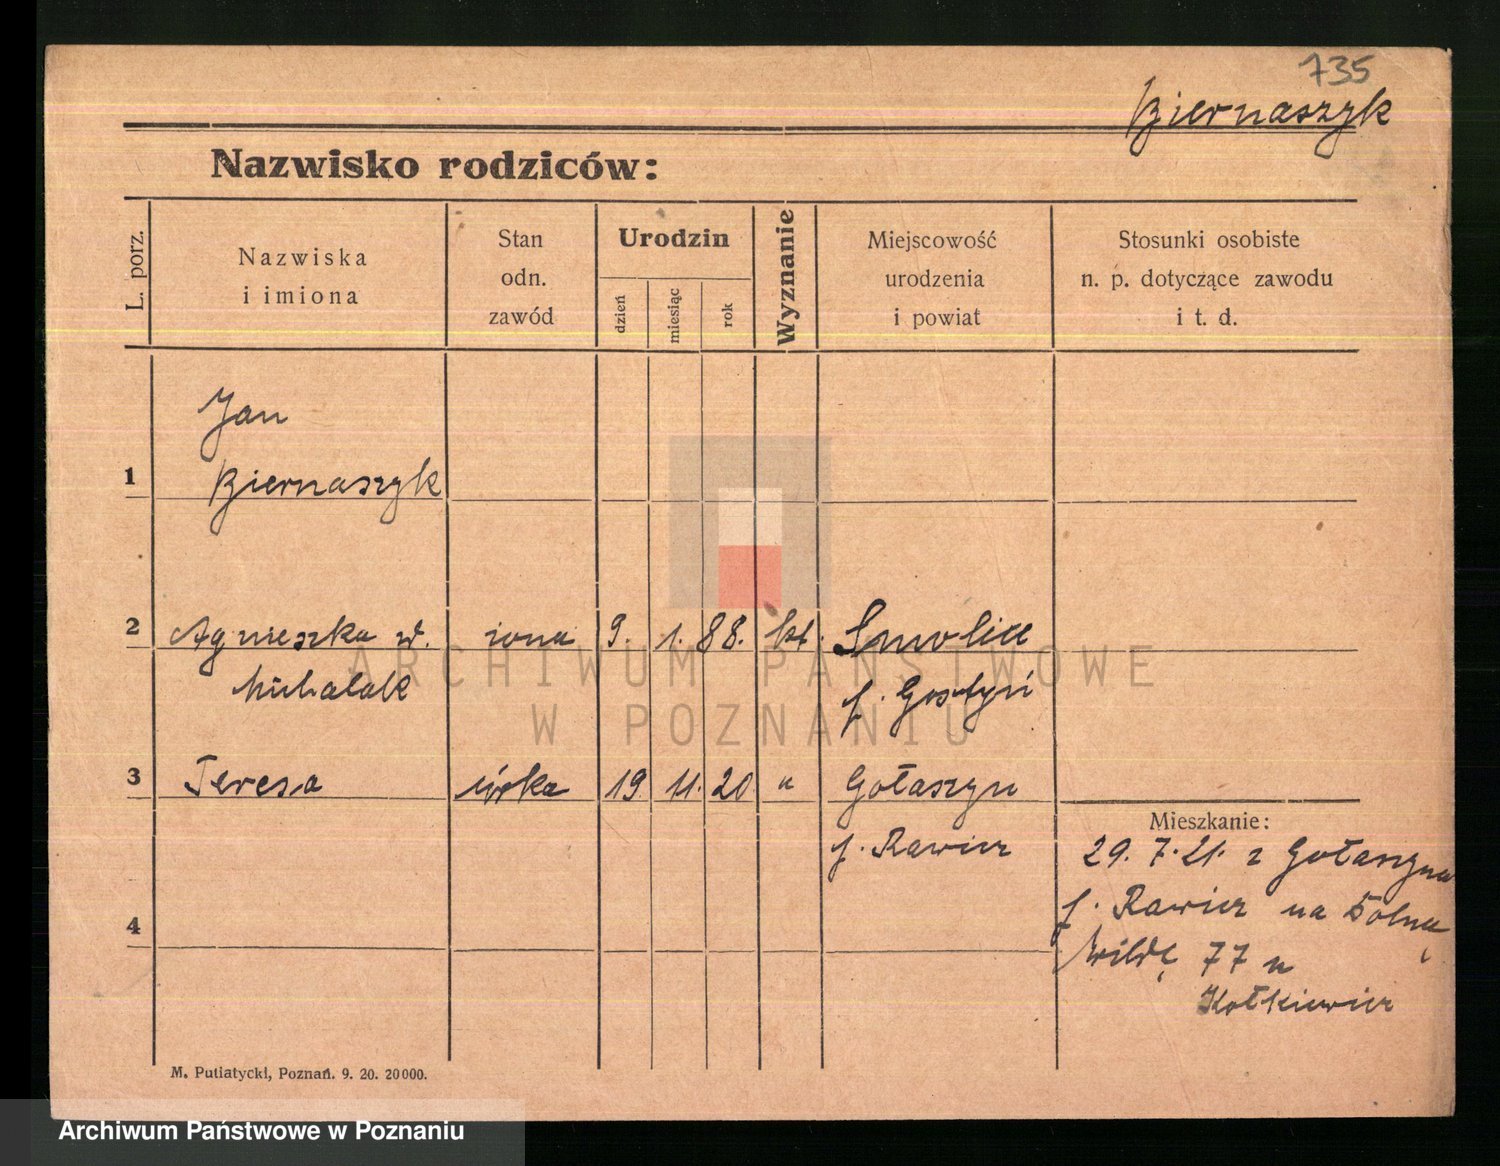 735
Biernaszyk
Nazwisko rodziców:
L. porz.
Nazwiska
i imiona
Stan
odn.
zawód
Urodzin
dzień
miesiąc
rok
Wyznanie
Miejscowość
urodzenia
i powiat
Stosunki osobiste
n. p. dotyczące zawodu
i t. d.
Jan
1 Biernaszyk
2 Agnieszka z d. żona 9. 1. 88. kt. Smolice
Michalak p. Gostyń
3 Teresa córka 19. 11. 20 " Gołaszyn
p. Rawicz
Mieszkanie:
29. 7. 21. z Gołaszyna
p. Rawicz na Dolną
Wildę 77 u
Kołkiewicz
4
M. Putiatycki, Poznań. 9. 20. 20000.
ARCHIWUM PAŃSTWOWE
W POZNANIU
Archiwum Państwowe w Poznaniu